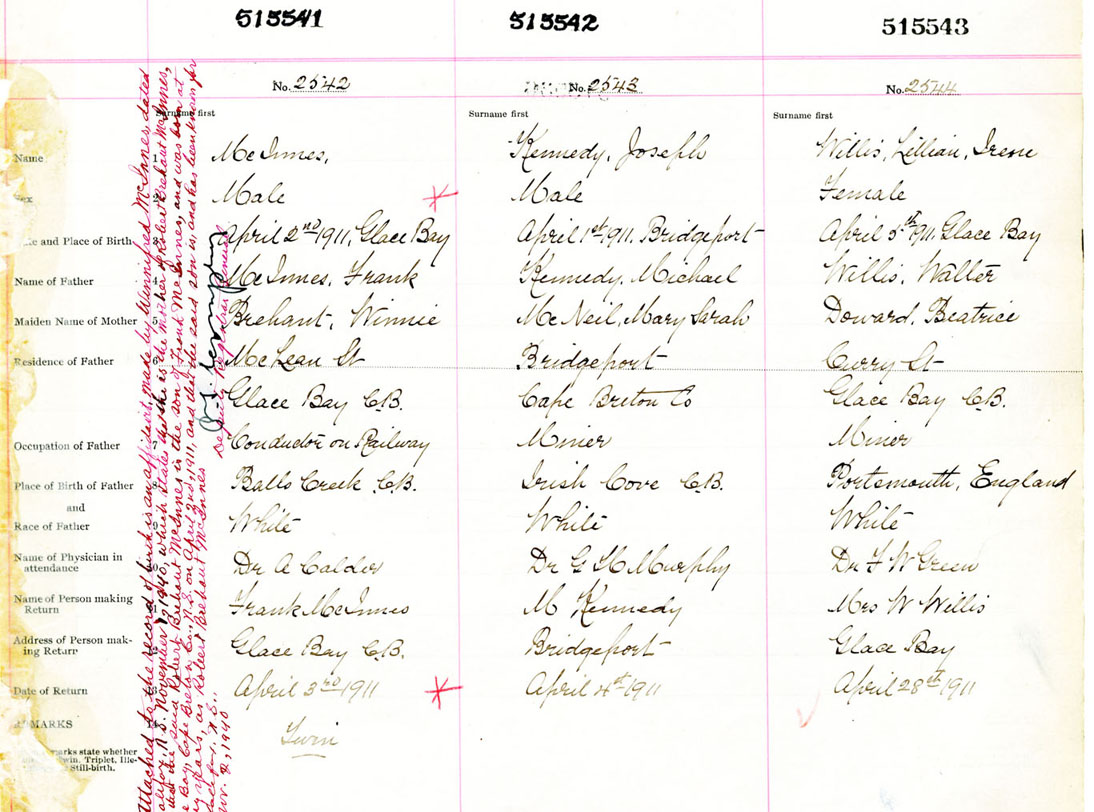 515541 515542 515543
No. 2542 No. 2543 No. 2544
Surname first Surname first Surname first
Name 1 McInnes, Kennedy, Joseph Willis, Lillian, Irene
Sex Male Male Female
and Place of Birth 3 April 2nd 1911, Glace Bay April 1st 1911, Bridgeport April 5th 1911 Glace Bay
Name of Father 4 McInnes, Frank Kennedy, Michael Willis, Walter
Maiden Name of Mother 5 Brehant, Winnie McNeil, Mary Sarah Doward, Beatrice
Residence of Father 6 McLean St Bridgeport Curry St
Glace Bay C.B. Cape Breton Co Glace Bay C.B.
Occupation of Father 7 Conductor on Railway Miner Miner
Place of Birth of Father 8 Balls Creek C.B. Irish Cove C.B. Portsmouth, England
and
Race of Father 9 White White White
Name of Physician in
attendance 10 Dr A Calder Dr G H Murphy Dr F W Green
Name of Person making
Return 11 Frank McInnes M Kennedy Mrs W Willis
Address of Person mak-
ing Return Glace Bay C.B. Bridgeport Glace Bay
Date of Return April 3rd 1911 April 4st 1911 April 28th 1911
REMARKS 14 Twin
marks state whether
win, Triplet, Ille-
Still-birth.
Attached to the record of birth is an affidavit, made by Winnifred McInnes, dated
N.S. November 1940, which states that she is the mother of Robert Brehaut McInnes,
that the said Robert Brehaut McInnes is the son of Frank McInnes, and was born at
Bay, Cape Breton Co., N.S. on April 2nd, 1911, and that the said son is, and has been known for
years, as Robert Brehaut McInnes
N.S.,
1940
Deputy Registrar General